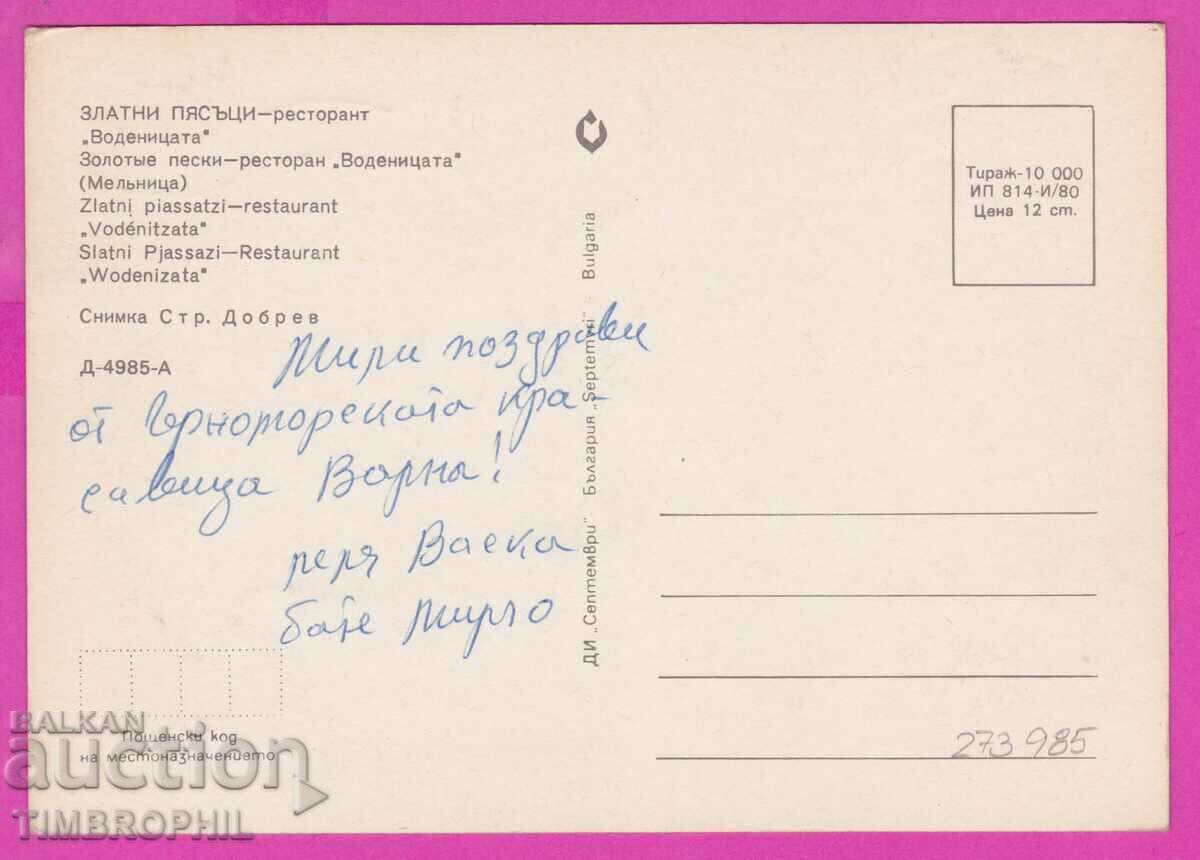 ЗЛАТНИ ПЯСЪЦИ—ресторант
„Воденицата"
Золотые пески—ресторан „Воденицата"
(Мельница)
Zlatni piassatzi—restaurant
„Vodénitzata"
Slatni Pjassazi—Restaurant
„Wodenizata"
Снимка Стр. Добрев
Д-4985-А
Мили поздрави
от Черноморската кра-
савица Варна!
леля Васка
бате Мирчо
Пощенски код
на местоназначението
ДИ „Септември" България „Septemvri" Bulgaria
Тираж-10 000
ИП 814-И/80
Цена 12 ст.
273985
BALKAN
auction
TIMBROPHIL